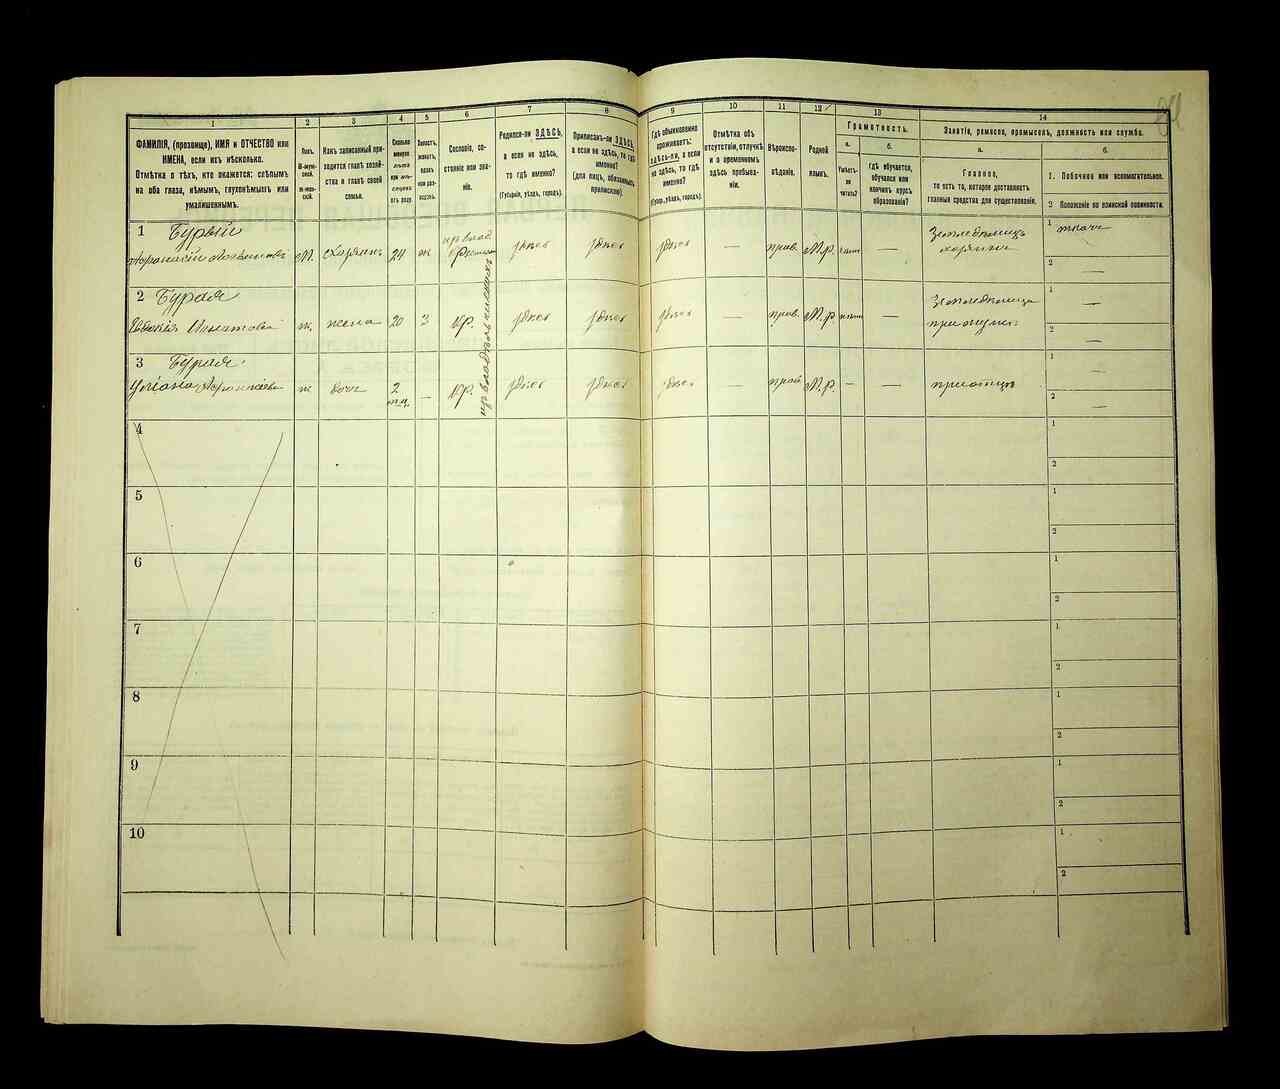 84
1 2 3 4 5 6 7 8 9 10 11 12 13 14
ФАМИЛІЯ, (прозвище), ИМЯ и ОТЧЕСТВО или
ИМЕНА, если ихъ нѣсколько.
Отмѣтка о тѣхъ, кто окажется: слѣпымъ
на оба глаза, нѣмымъ, глухонѣмымъ или
умалишеннымъ.
Полъ.
М-муж-
ской.
Ж-жен-
скій.
Какъ записанный при-
ходится главѣ хозяй-
ства и главѣ своей
семьи.
Сколько
минуло
лѣтъ
или мѣ-
сяцевъ
отъ роду.
Холостъ,
женатъ,
вдовъ
или раз-
веденъ.
Сословіе, со-
стояніе или зва-
ніе.
Родился-ли ЗДѢСЬ,
а если не здѣсь,
то гдѣ именно?
(Губернія, уѣздъ, городъ).
Приписанъ-ли ЗДѢСЬ,
а если не здѣсь, то гдѣ
именно?
(для лицъ, обязанныхъ
припискою).
Гдѣ обыкновенно
проживаетъ:
ЗДѢСЬ-ли, а если
не здѣсь, то гдѣ
именно?
(Губер., уѣздъ, городъ).
Отмѣтка объ
отсутствіи, отлучкѣ
и о временномъ
здѣсь пребыва-
ніи.
Вѣроиспо-
вѣданіе.
Родной
языкъ.
Грамотность.
а.
Умѣетъ-
ли
читать?
б.
гдѣ обучается,
обучался или
кончилъ курсъ
образованія?
Занятіе, ремесло, промыселъ, должность или служба.
а.
Главное,
то есть то, которое доставляетъ
главныя средства для существованія.
б.
1. Побочное или вспомогательное.
2 Положеніе по воинской повинности.
1 Бурый
Афанасій М. хозяинъ 24 ж здѣсь здѣсь здѣсь — прав. М.р. — хозяинъ
1 ткачъ
2 —
2 Бурая
Игнатова ж. жена 20 З кр. здѣсь здѣсь здѣсь — прав. М.р —
1 —
2 —
3 Бурая
Уліана ж дочь 2 — кр. здѣсь здѣсь здѣсь — прав М.р. — — при отцѣ
1 —
2 —
4 1
2
5 1
2
6 1
2
7 1
2
8 1
2
9 1
2
10 1
2